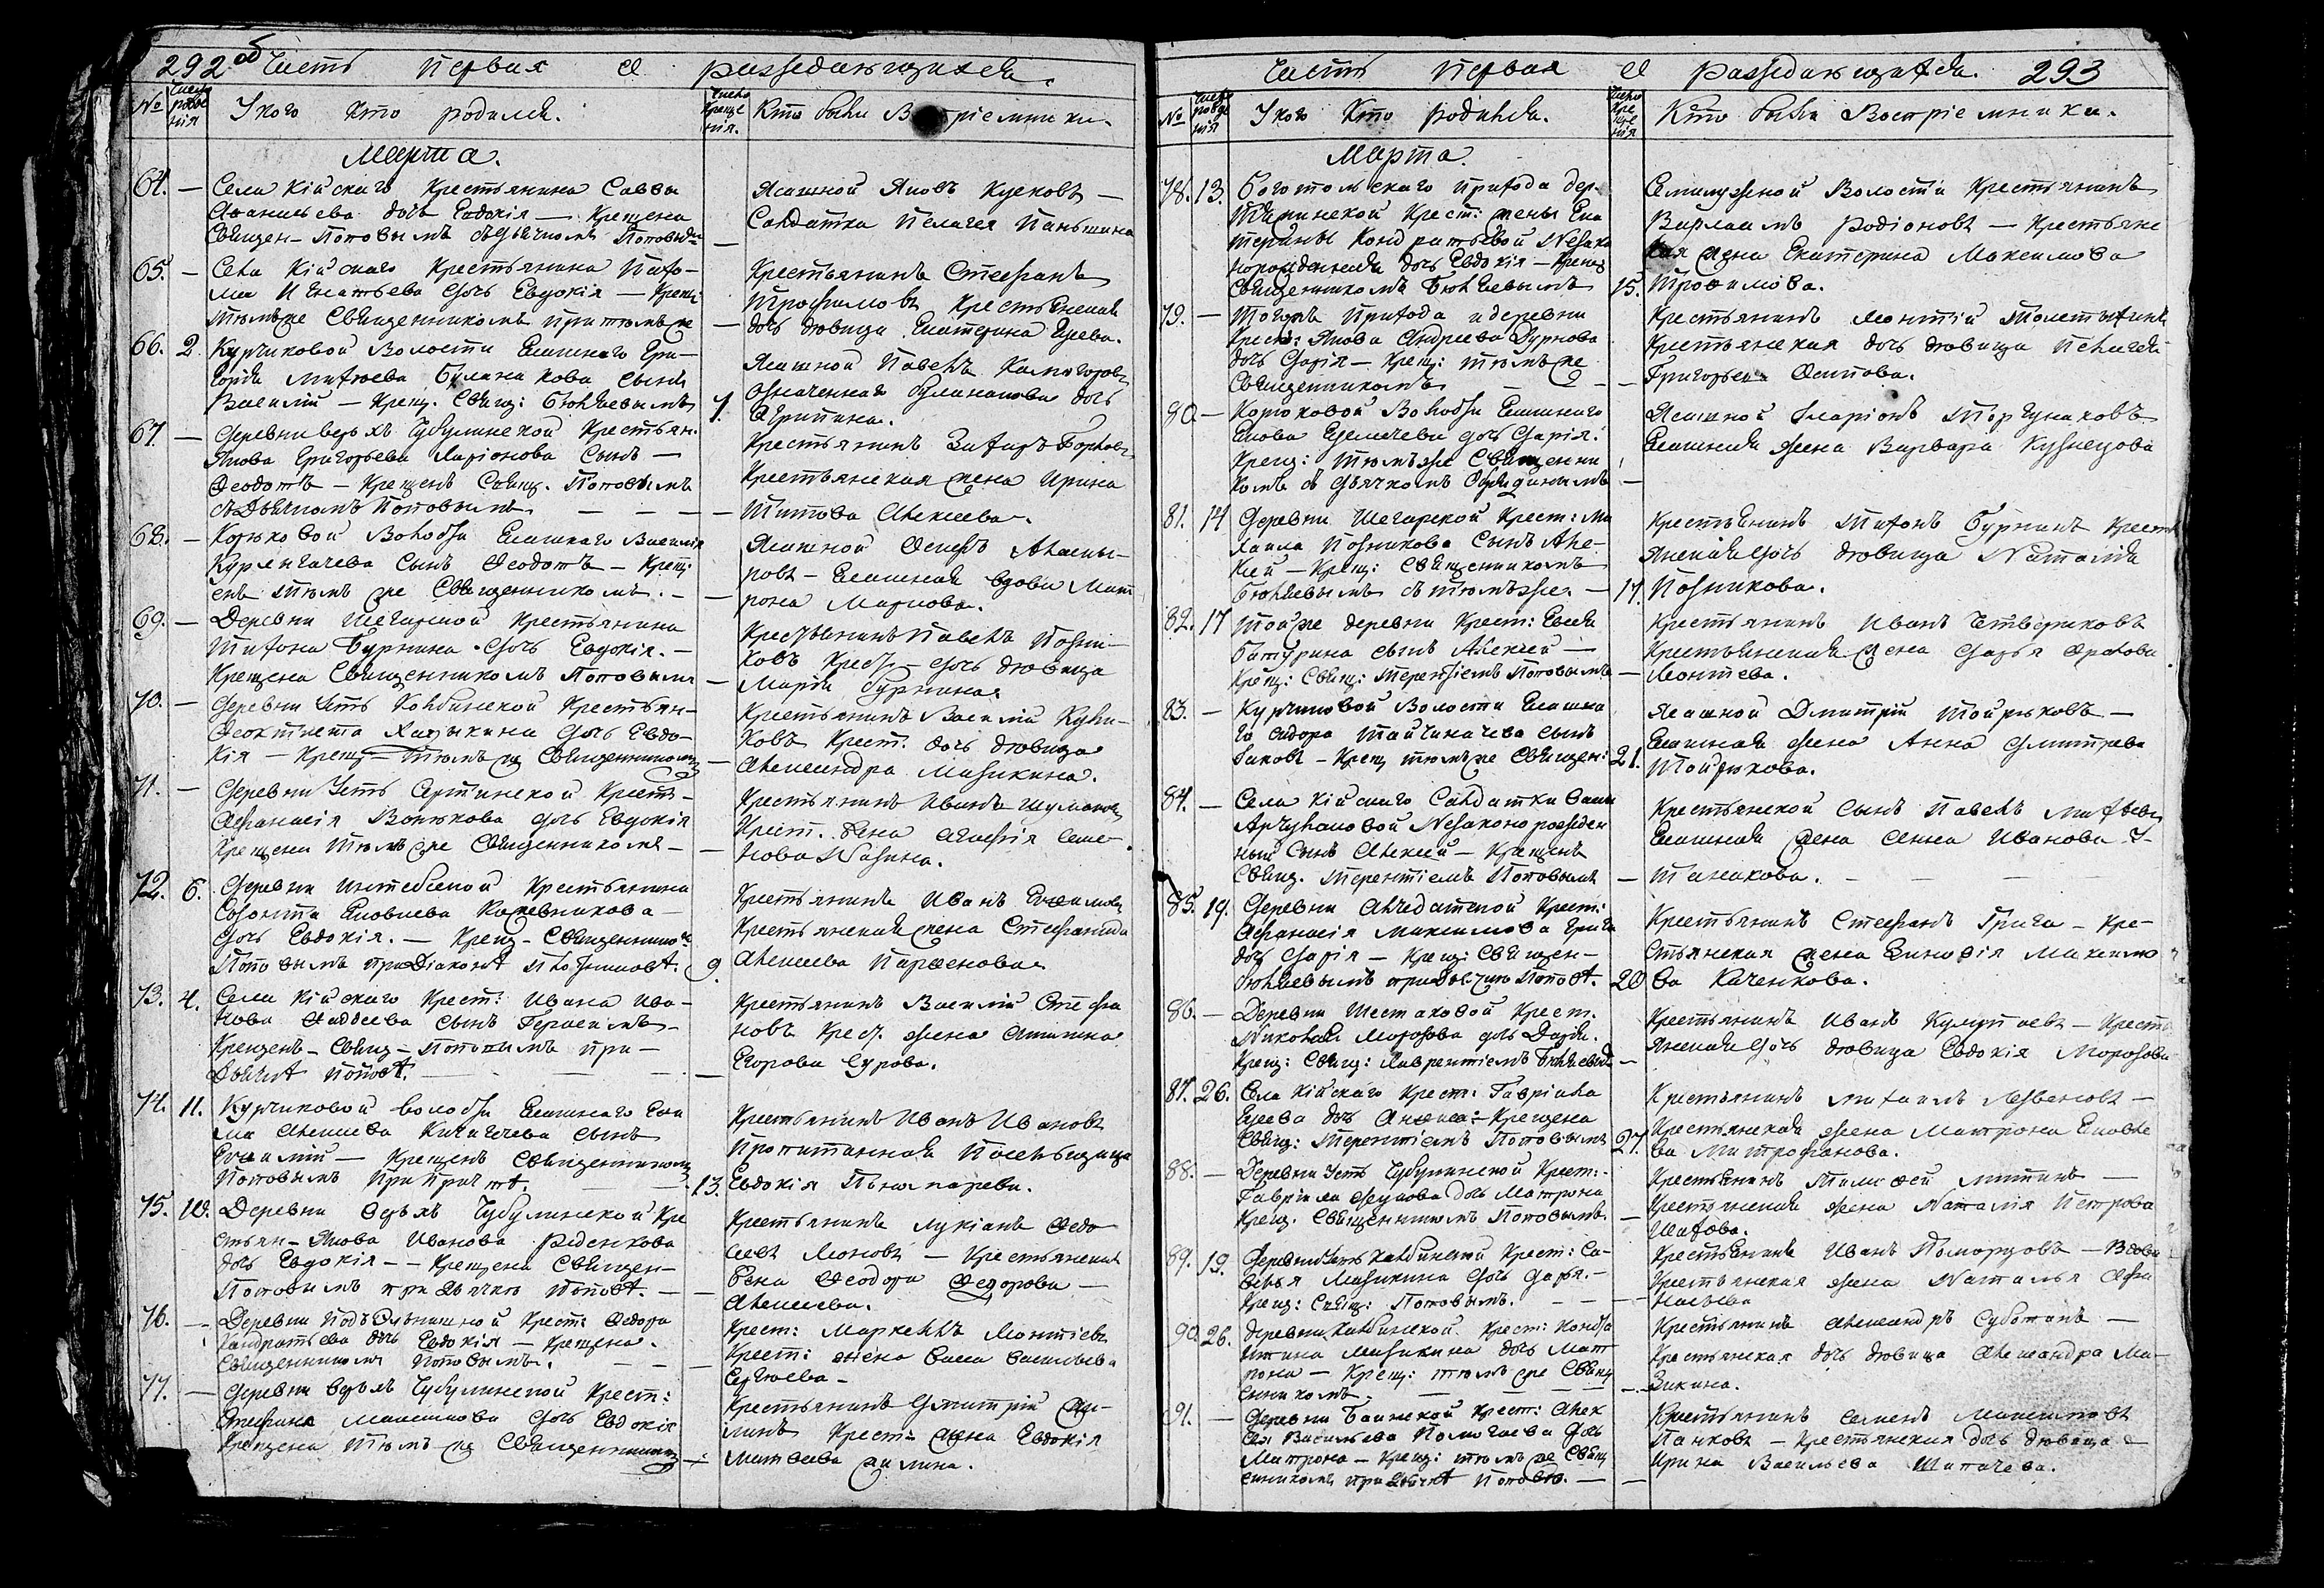 292 об Часть первая о раждающихся.
№ Число рожденія У кого кто родился. Число крещенія. Кто были Воспріемники.
Марта.
64. — Села Кійскаго Крестьянина Саввы
Аѳанасьева дочь Евдокія — Крещена
Священ. Поповымъ съ дьячкомъ Поповымъ —
Ясашной Яковъ Кусковъ —
Солдатка Пелагея Паньшина
65. — Села Кійскаго Крестьянина Пахо-
ма Игнатьева дочь Евдокія — Крещ:
тѣмъ же Священникомъ —
Крестьянинъ Стефанъ
Трофимовъ Крестьянская
дочь дѣвица Екатерина Гусева.
66. 2. Курчиковой Волости Ясашнаго Гри-
горья Матвѣева Буланакова сынъ
Василій — Крещ. Свящ: Бѣляевымъ 7.
Ясашной Павелъ
означеннаго Буланакова дочь
Агрипина.
67. — Деревни верхъ Чубулинской Крестьян.
Якова Григорьева Ларіонова Сынъ —
Ѳеодотъ — Крещенъ Свящ. Поповымъ
съ Дьячкомъ Поповымъ — — —
Крестьянинъ Захаръ
Крестьянская жена Ирина
Титова Алексеева.
68. — Корюковой Волости Ясашнаго Василья
Курчигачева Сынъ Ѳеодотъ — Крещ-
енъ тѣмъ же Священникомъ. —
Ясашной Осипъ
Ясашная вдова Мат
рона Маркова.
69. — Деревни Шегарской Крестьянина
Тихона Бурнина дочь Евдокія. —
Крещена Священникомъ Поповымъ —
Крестьянинъ Павелъ Позня-
ковъ Крест. дочь дѣвица
Марья Бурнина.
70. — Деревни Усть Колбинской Крестьян-
Ѳеоктиста дочь Евдо-
кія — Крещ — тѣмъ же Священникомъ —
Крестьянинъ Василій
Крест. дочь дѣвица
Александра Мазикина.
71. — Деревни Усть Сертинской Крест-
Афанасія Волокова дочь Евдокія
Крещена тѣмъ же Священникомъ —
Крестьянинъ Иванъ
Крест. жена Семе-
нова
72. 6. Деревни Интебесской Крестьянина
Софонта Яковлева Кожевникова —
дочь Евдокія. — Крещ - Священникомъ
Поповымъ при Діаконѣ 9.
Крестьянинъ Иванъ
Крестьянская жена Стефанида
Алексеева Парѳенова.
73. 4. Села Кійскаго Крест: Ивана Ива-
нова Ѳаддеева Сынъ Герасимъ —
Крещенъ — Свящ — Поповымъ при —
Дьячкѣ Поповѣ. —
Крестьянинъ Василій Стефа
новъ Крест. жена
Егорова Сурова.
74. 11. Курчиковой волости Ясашнаго
Алексеева Кичигечева Сынъ
Евѳимій — Крещенъ Священникомъ
Поповымъ при Причтѣ. 13.
Крестьянинъ Иванъ Ивановъ
Пропитанная Посельщица
Евдокія
75. 10. Деревни верхъ Чубулинской Кре
стьян — Якова Иванова
дочь Евдокія — Крещена Священ-
Поповымъ при Дьячкѣ Поповѣ. —
Крестьянинъ Лукіанъ
— Крестьянская
жена Ѳеодора Ѳедорова —
Алексеева.
76. — Деревни Подъельнишной Крест: Ѳедора
Кондратьева дочь Евдокія — Крещена.
Священникомъ Поповымъ. —
Крест: Маркеллъ Леонтіевъ
Крест: жена Васса Васильева
Сергѣева —
77. — Деревни верхъ Чубулинской Крест:
Стефана Максимова дочь Евдокія
Крещена тѣмъ же Священникомъ —
Крестьянинъ Дмитрій
Крест: жена Евдокія
Матвеева
Часть первая о раждающихся. 293
№ Число рожденія У кого кто родился. Число крещенія Кто были Воспріемники.
Марта.
78. 13. Боготольскаго прихода дер-
Крест: жены Ека
терины Кондратьевой Незако
норожденная дочь Евдокія — Крещ:
Священникомъ Бѣляевымъ 15.
Семилужной Волости Крестьянинъ
Варлаамъ Родіоновъ — Крестьянс
кая жена Екатерина Максимова
Трофимова.
79. — Тогожъ прихода и деревни
Крест: Якова Андреева Дурнова
дочь Дарія — Крещ: тѣмъ же
Священникомъ — —
Крестьянинъ Леонтій Толстыхинъ
Крестьянская дочь дѣвица Пелагея
Григорьева Осипова.
80. — Корюковой Волости Ясашнаго
Якова дочь Дарія.
Крещ: тѣмъ же Священни
комъ съ Дьячкомъ —
Ясашной Иларіонъ
Ясашная жена Варвара Кузнецова
81. 14 Деревни Шегарской Крест: Ми
хаила Познякова Сынъ Але-
ксей — Крещ: Священникомъ
Бѣляевымъ съ тѣмъ же. — 17.
Крестьянинъ Тихонъ Бурнинъ Крест
янская дочь дѣвица Наталья
Познякова.
82. 17 Той же деревни Крест: Евсея
Батурина сынъ Алексей —
Крещ: Свящ: Терентіемъ Поповымъ —
Крестьянинъ Иванъ Четвериковъ
Крестьянская жена Дарья Фролова
Леонтева.
83. — Курчиковой Волости Ясашна
го Ѳедора Тайчиначева сынъ
Іаковъ — Крещ тѣмъ же Священ: 21.
Ясашной Дмитрій —
Ясашная жена Анна Дмитрева
84. — Села Кійскаго Солдатки
Незаконорожден
ный Сынъ Алексей — Крещенъ
Свящ. Терентіемъ Поповымъ —
Крестьянской Сынъ Павелъ Матвеевъ
Ясашная жена Анна Иванова
Танакова. — — —
85. 19. Деревни Алчедатской Крест:
Афанасія Максимова
дочь Дарія — Крещ: Священ-
Бѣляевымъ при Дьячкѣ Поповѣ. 20
Крестьянинъ Стефанъ Грига — Кре-
стьянская жена Зиновія Максимо
ва Каченкова.
86. — Деревни Шестаковой Крест.
Николая Морозова дочь Дарья.
Крещ: Свящ: Лаврентіемъ Бѣляевымъ —
Крестьянинъ Иванъ — Крест
янская дочь дѣвица Евдокія Морозова
87. 26. Села Кійскаго Крест: Гавріила
Гусева дочь Анѳиса — Крещена
Свящ: Терентіемъ Поповымъ 27.
Крестьянинъ Михаилъ —
Крестьянская жена Матрона Яковле
ва Митрофанова.
88. — Деревни Усть Чубулинской Крест: —
Гавріила дочь Матрона
Крещ. Священникомъ Поповымъ. —
Крестьянинъ Тимоѳей —
Крестьянская жена Наталія Петрова
Шатова.
89. 19. Деревни Усть Колбинской Крест: Са-
велья Мазикина дочь Дарья. —
Крещ: Свящ: Поповымъ. — — —
Крестьянинъ Иванъ Поморцовъ — Вдова
Крестьянская жена Наталья Афа
насьева
90. 26. Деревни Колбинской Крест:
Мазикина дочь Мат
рона — Крещ: тѣмъ же Священ
енникомъ. — — —
Крестьянинъ Александръ Суботинъ —
Крестьянская дочь дѣвица Александра Ма-
зикина.
91. — Деревни Баимской Крест: Алек
сея Васильева дочь
Матрона — Крещ: тѣмъ же Свящ
енникомъ при Дьячкѣ Поповѣ. —
Крестьянинъ Семенъ Максимовъ
Панковъ — Крестьянская дочь дѣвица —
Ирина Васильева Шипачева.